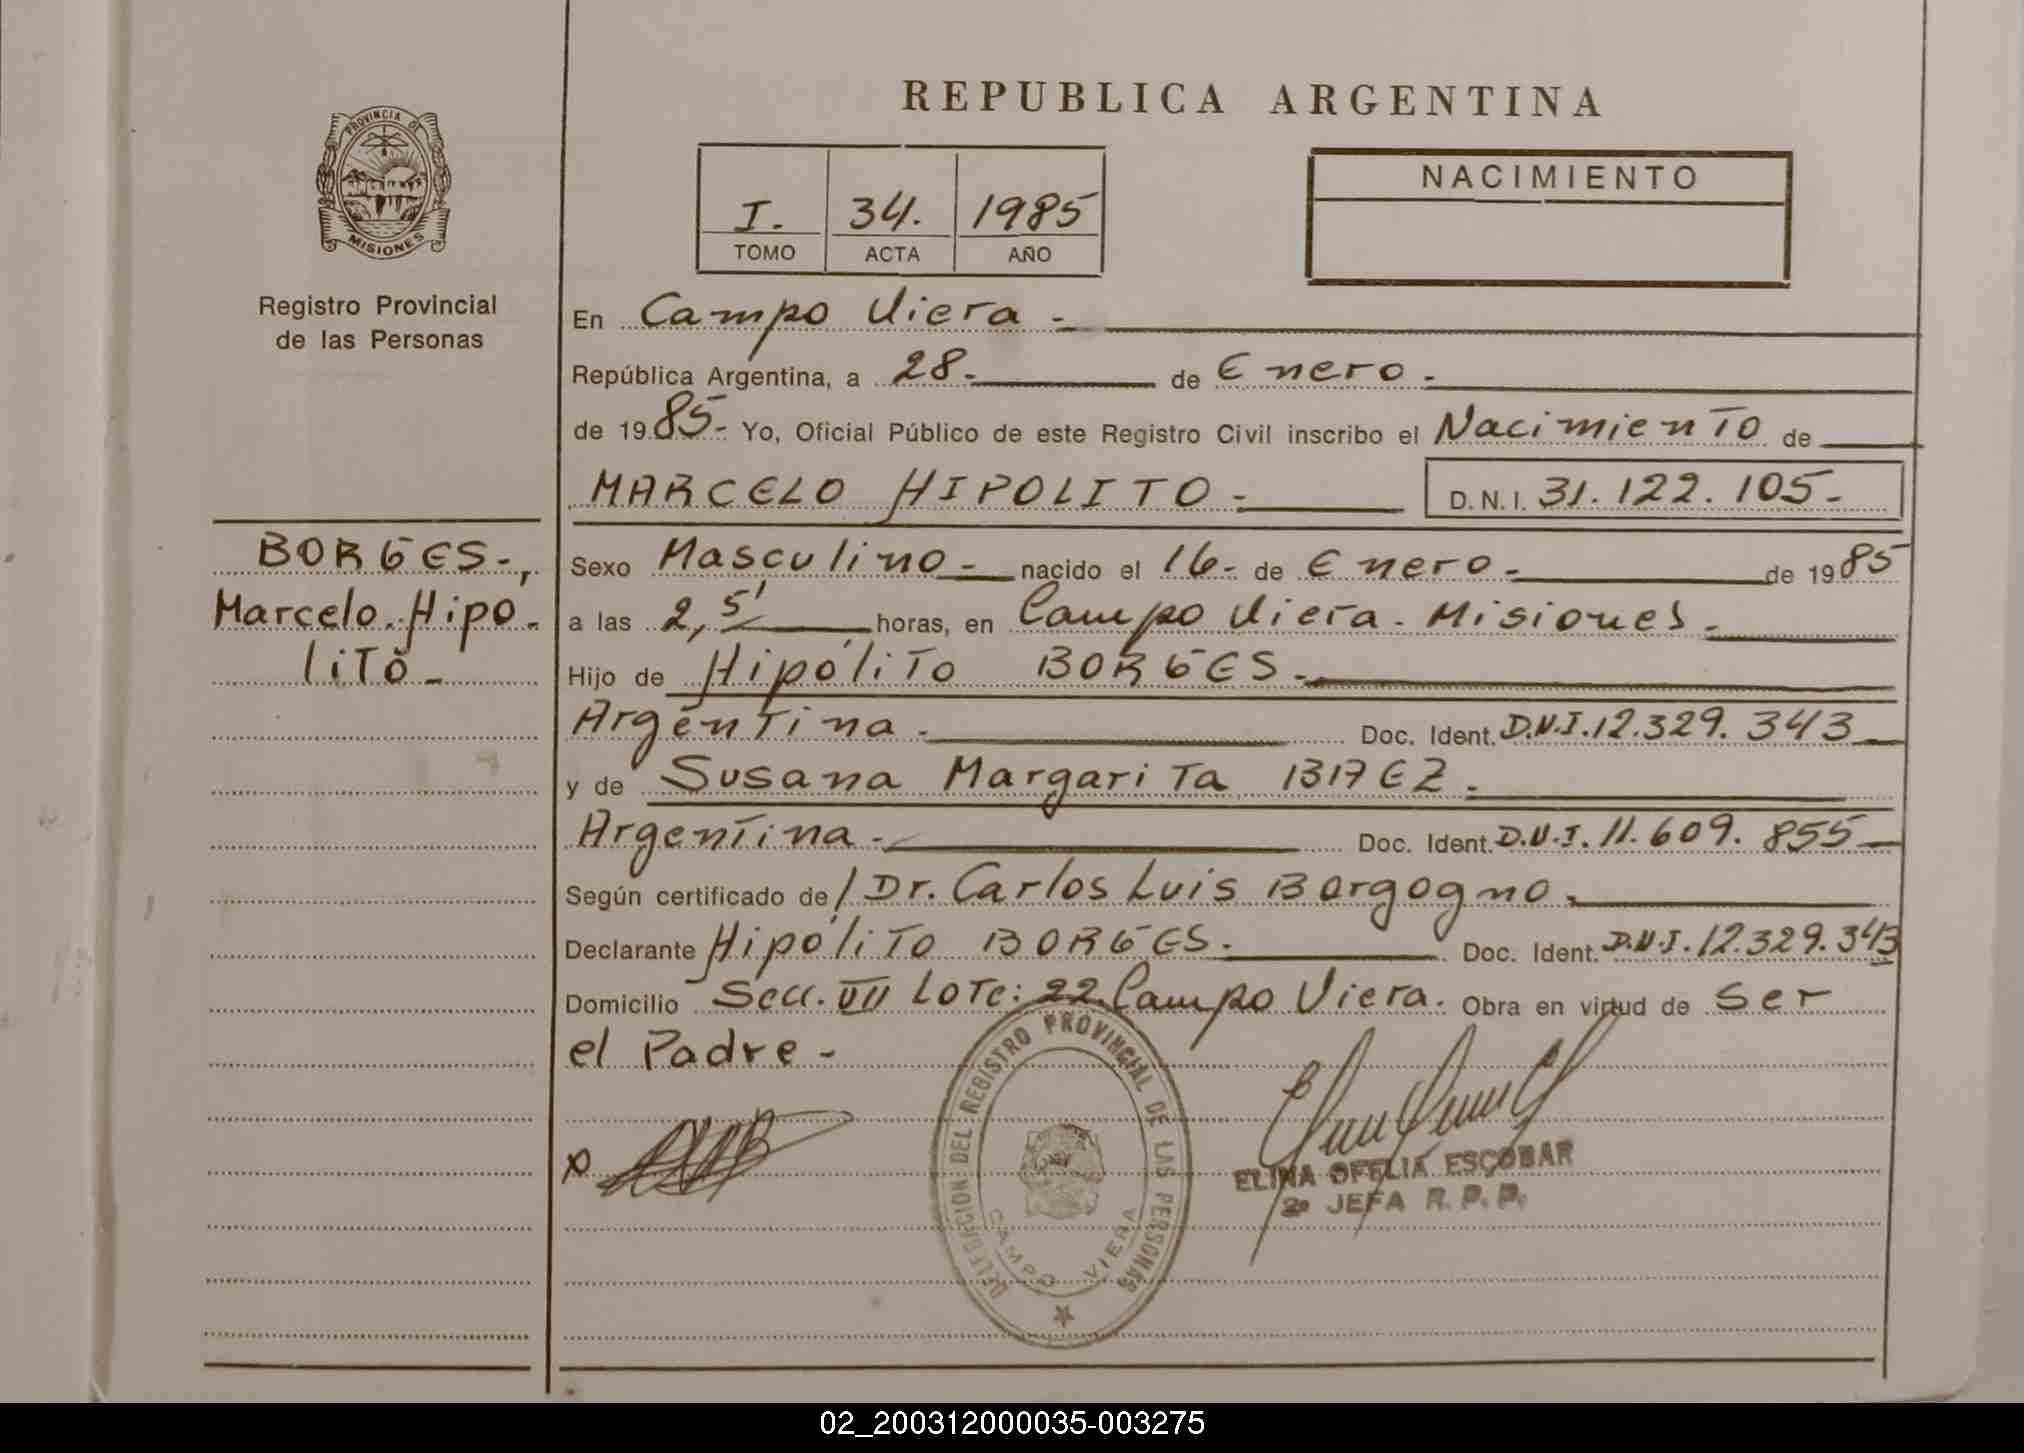 REPUBLICA ARGENTINA
PROVINCIA DE
MISIONES
Registro Provincial
de las Personas
I. 34. 1985
TOMO ACTA AÑO
NACIMIENTO
En Campo Viera -
República Argentina, a 28.- de Enero.-
de 1985- Yo, Oficial Público de este Registro Civil inscribo el Nacimiento de
MARCELO HIPOLITO.- D.N.I. 31.122.105.-
BORGES.-,
Marcelo Hipo-
lito-
Sexo Masculino- nacido el 16- de Enero.- de 1985
a las 2,5' horas, en Campo Viera. Misiones.-
Hijo de Hipólito BORGES.-
Argentina.- Doc. Ident. D.N.I. 12.329.343
y de Susana Margarita BAEZ.-
Argentina.- Doc. Ident. D.N.I. 11.609.855
Según certificado de / Dr. Carlos Luis Borgogno.
Declarante Hipólito BORGES. Doc. Ident. D.N.I. 12.329.343
Domicilio Secc. VII Lote: 22 Campo Viera. Obra en virtud de ser
el Padre-
DELEGACION DEL REGISTRO PROVINCIAL DE LAS PERSONAS
CAMPO VIERA
ELINA OFELIA ESCOBAR
2º JEFA R. P. P.
02_200312000035-003275